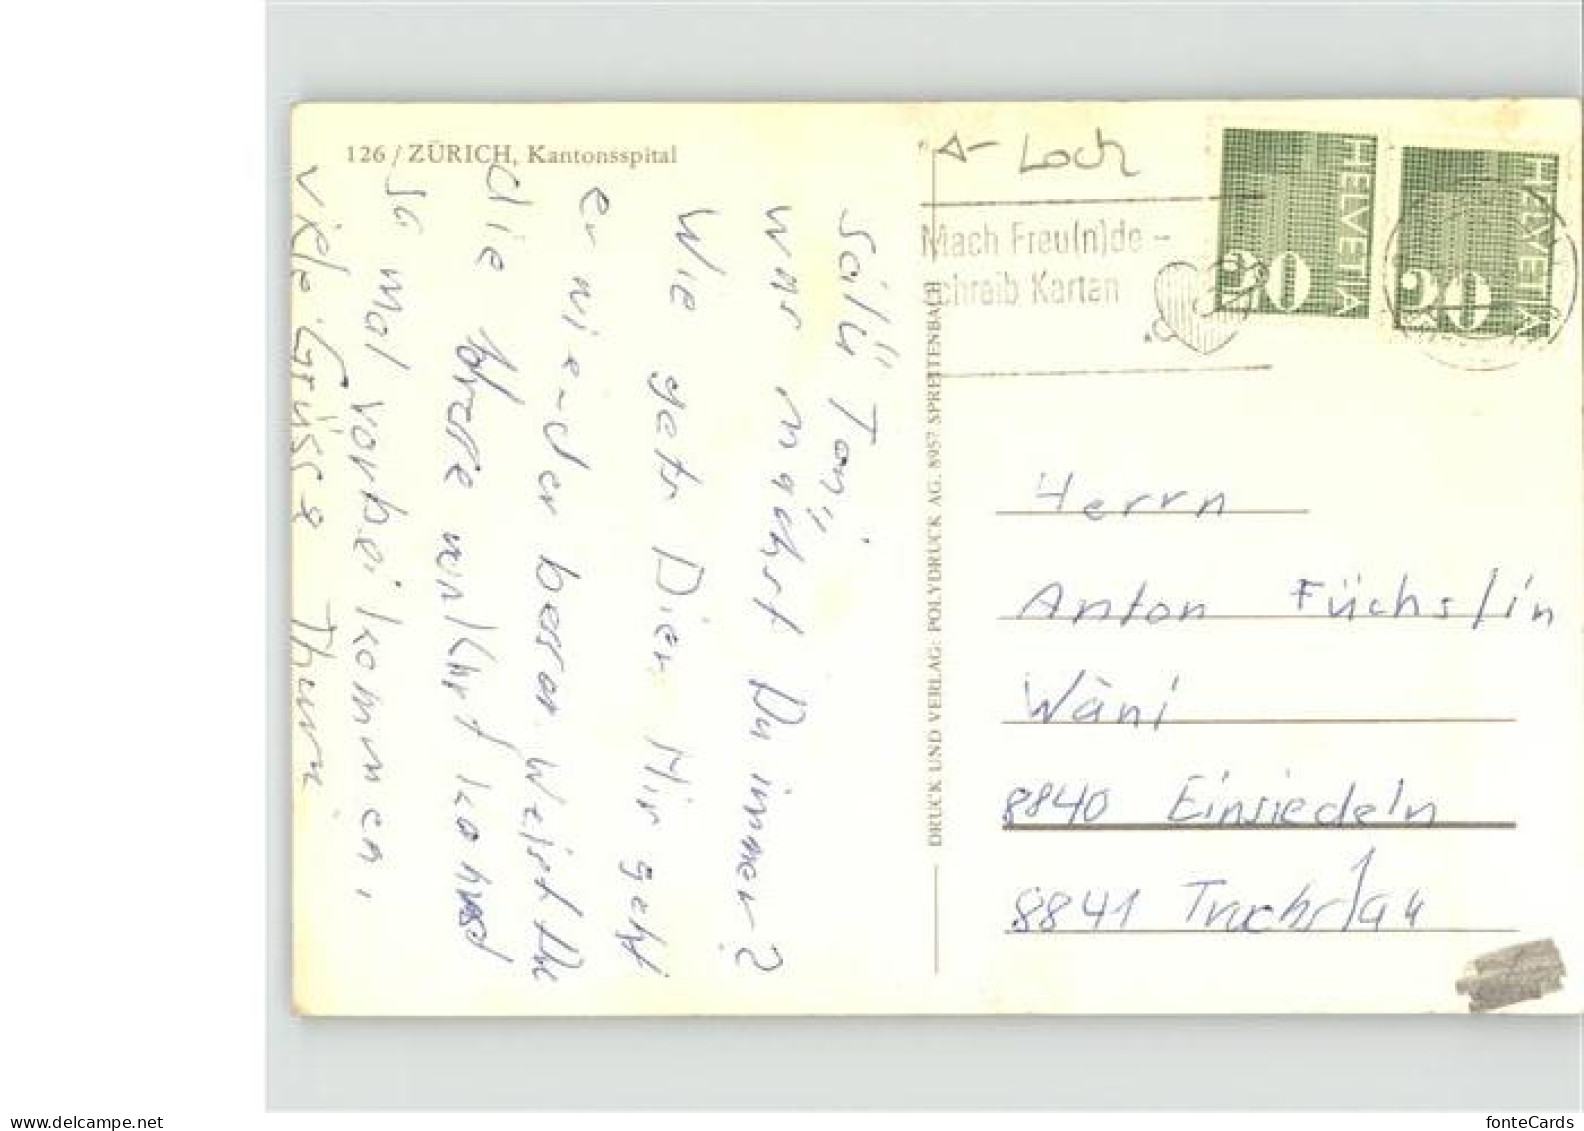 126 / ZÜRICH, Kantonsspital
Loch
Mach Freu(n)de –
schreib Karten
HELVETIA
20
HELVETIA
20
Salü Toni
was machst Du immer?
Wie gets Dier Mir geht
er wie-der besser Weist Du
die Adresse
so mal vorbei kommen,
viele Grüsse Thum
DRUCK UND VERLAG: POLYDRUCK AG. 8957 SPREITENBACH
Herrn
Anton Füchslin
Wäni
8840 Einsiedeln
8841 Trachslau
www.delcampe.net
fonteCards